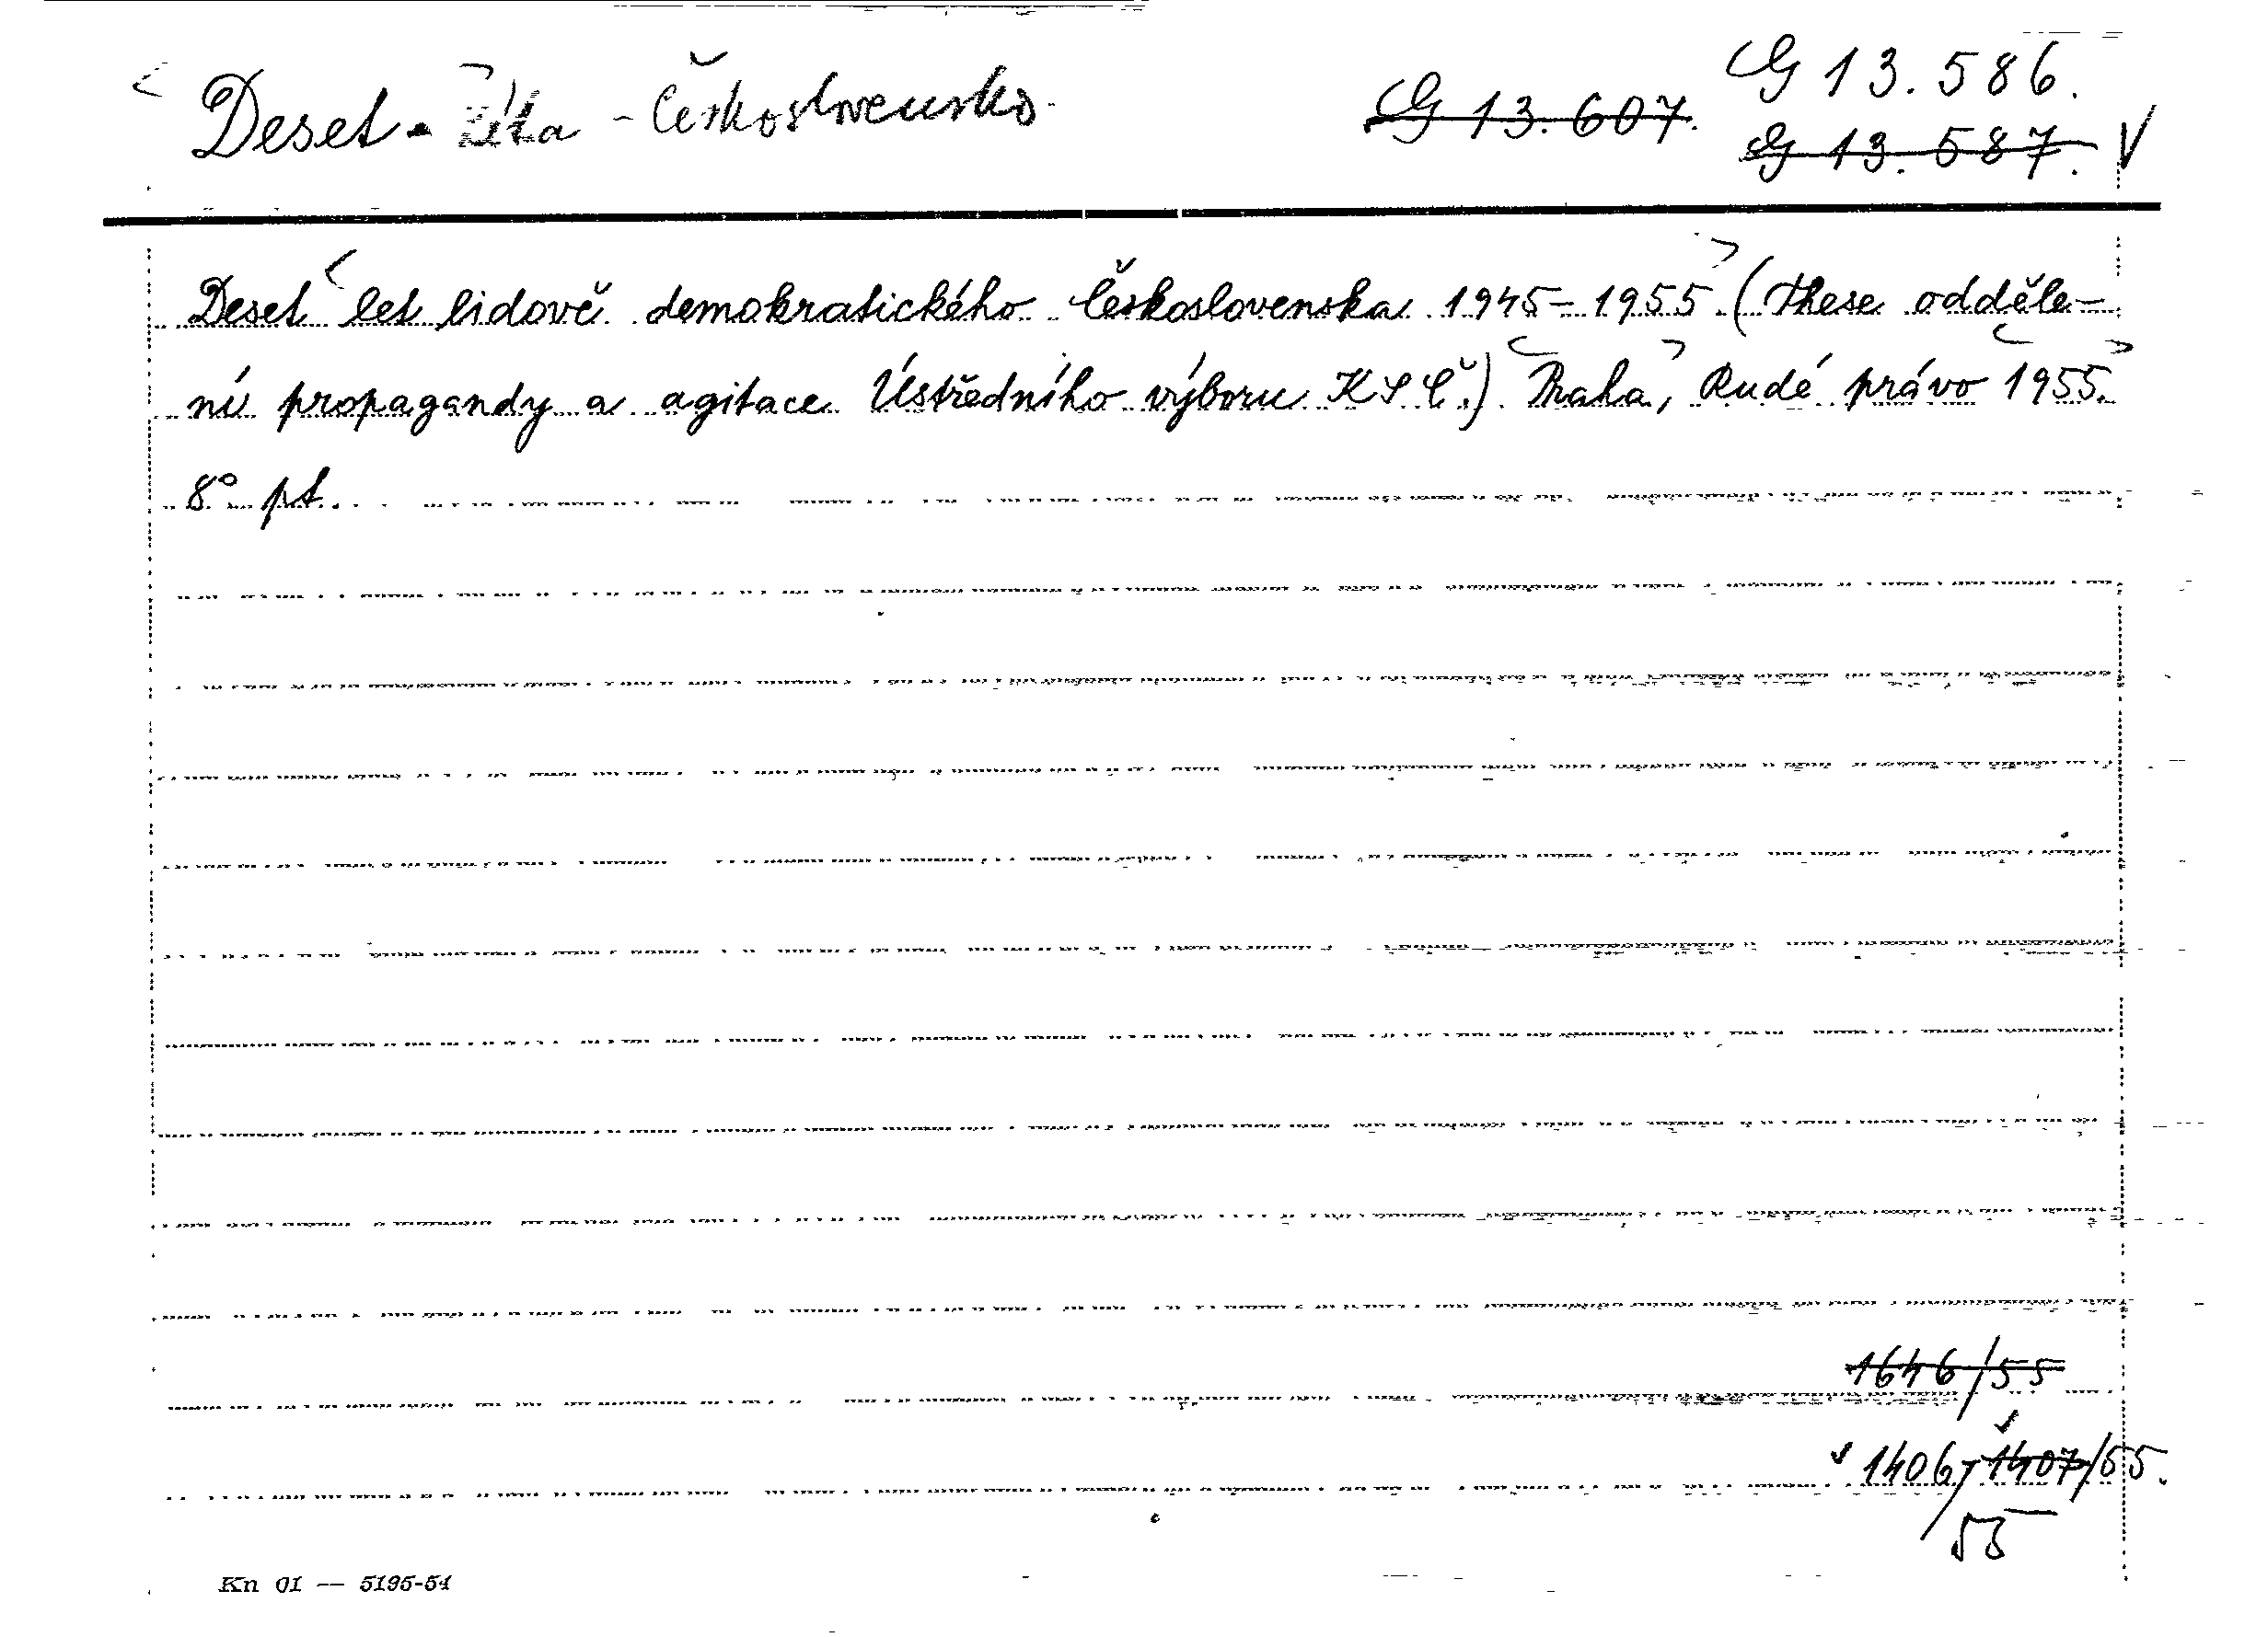 Deset - léta - Československo G 13.607. G 13.586.
G 13.587. V
Deset let lidově demokratického Československa 1945-1955 (These odděle-
ní propagandy a agitace Ústředního výboru KSČ.) Praha, Rudé právo 1955.
8° pt.
1646/55
1406, 1407/55.
55
Kn 01 — 5195-54